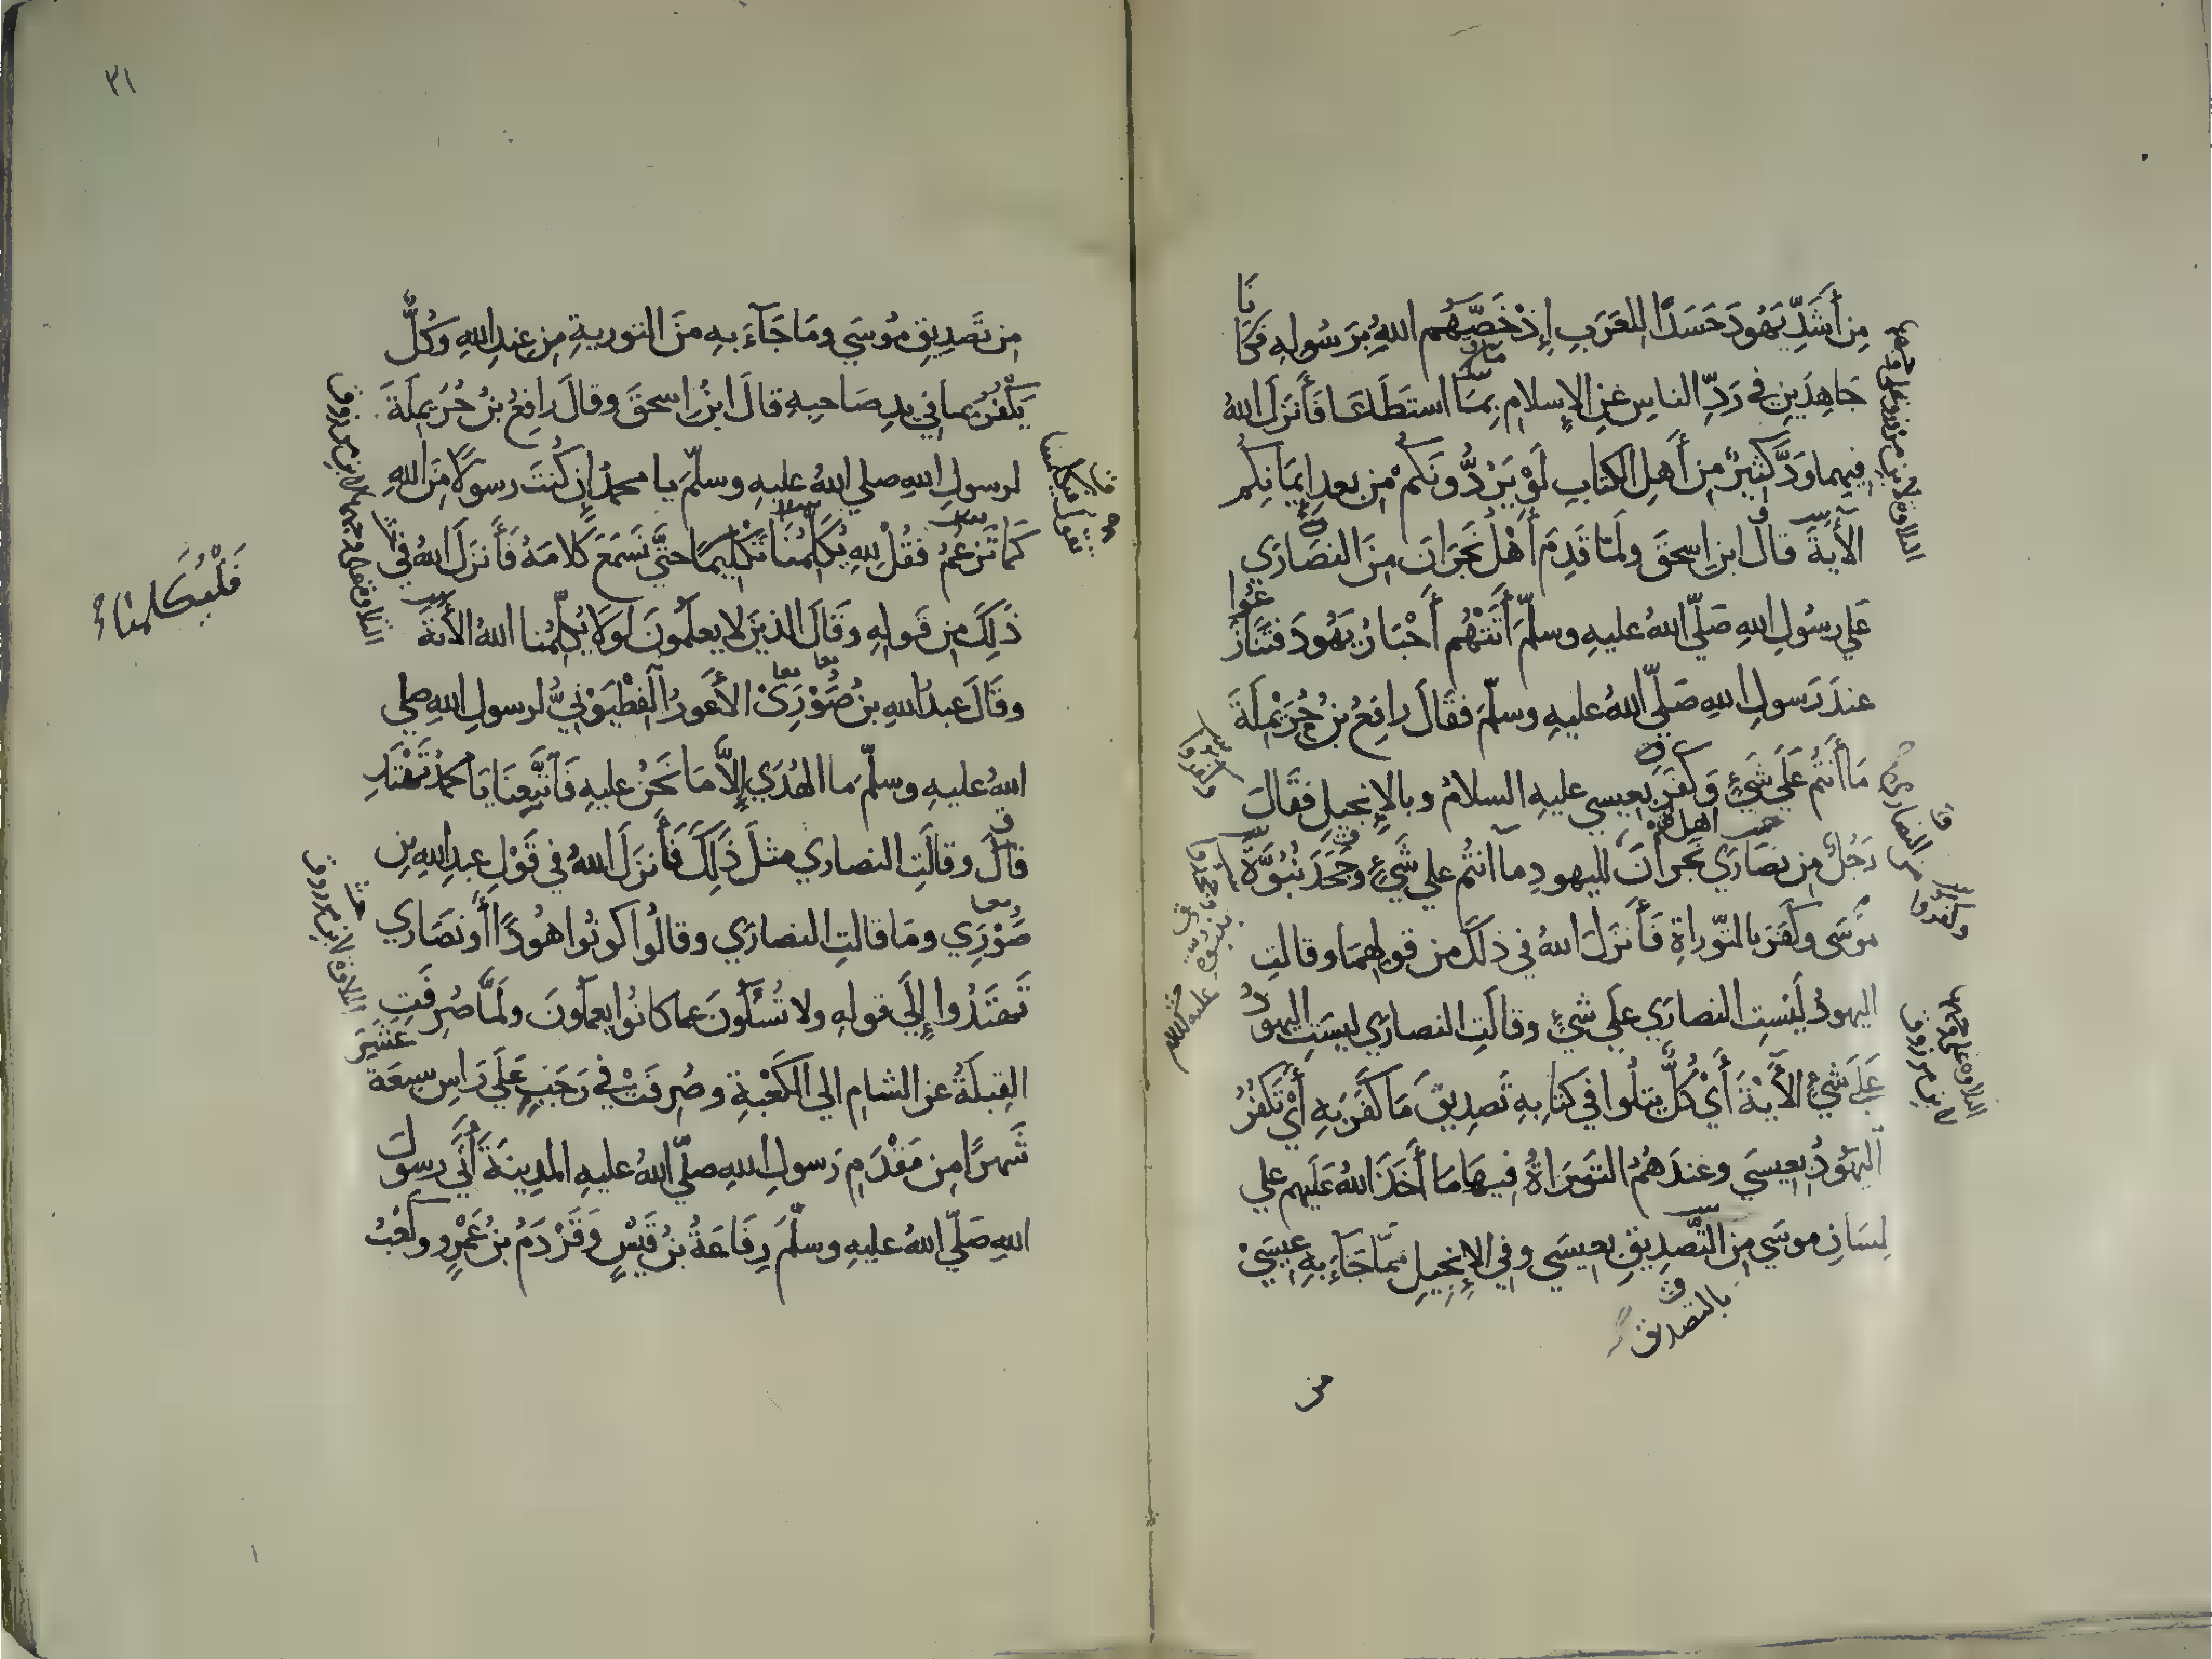 مِن أَشَدِّ يَهُودَ حَسَدًا لِلعَرَبِ إِذْ خَصَّهُم اللهُ بِرَسُولِهِ فَكَانَا
جَاهِدَينِ في رَدِّ الناسِ عَنِ الإِسلامِ بِمَا استَطَاعَا فَأَنزَلَ اللهُ
فِيهِما وَدَّ كَثِيرٌ مِن أَهلِ الكتابِ لَوْ يَرُدُّونَكُم مِن بعدِ إيمَانِكُم
الأَيةَ قالَ ابن إسحقَ ولَمّا قَدِمَ أَهْلُ نَجرَانَ مِنَ النصَارَي
عَلي رسُولِ اللهِ صَلّي اللهُ عليهِ وسلّمَ أَتَتْهُم أَحْبَارُ يَهُودَ فتَنَازَعُوا
عندَ رَسولِ اللهِ صَلّي اللهُ عليهِ وسلّمَ فقَالَ رافِعُ بنُ حُرَيْمِلَةَ
مَا أَنتُم عَلَي شَيءٍ وَكَفَرَ بعِيسي عليهِ السلامُ وبالإِنجيلِ فقَالَ
رَجُلٌ مِن نصَارَي نَجرانَ لليهودِ ما أنتُم علي شَيءٍ وجَحَدَ نُبُوَّةَ
مُوسَي وكَفَرَ بالتّوراةِ فَأَنزَلَ اللهُ في ذلكَ من قولِهِمَا وقالتِ
اليهودُ لَيْسَتِ النصارَي علَي شيءٍ وقالَتِ النصارَي ليسَتِ اليهودُ
عَلَي شَيءٍ الأَيَةَ أَيْ كُلٌّ يتلُوا في كتابِهِ تَصدِيقَ مَا كفَرَ بهِ أَيْ تَكفُرُ
اليَهُودُ بعِيسَي وعندَهُمُ التَوْرَاةُ فِيهَا مَا أَخَذَ اللهُ عَلَيهِم علي
لِسَانِ موسَي مِنَ التَّصدِيقِ بعِيسَي وفي الإِنجِيلِ مِمّا جَآءَ بهِ عِيسَيْ
بالتصديق
من
٣١
مِن تَصدِيقِ مُوسَي ومَا جَآءَ بهِ منَ التوريةِ مِن عِندِ اللهِ وكُلٌّ
يَكْفُرُ بما في يدِ صَاحبِهِ قالَ ابنُ إسحقَ وقالَ رافِعُ بنُ حُرَيمِلَةَ
لرسولِ اللهِ صلي اللهُ عليهِ وسلّمَ يا محمدُ إن كُنتَ رسولاً مِنَ اللهِ
كَمَا تَزعُمُ فقُلْ للهِ يُكَلِّمُنَا تَكْلِيمًا حتَّي نَسمَعَ كَلامَهُ فَأَنزَلَ اللهُ في
ذَلِكَ مِن قَولِهِ وقَالَ الذينَ لا يعلَمُونَ لَولا يُكلِّمُنا اللهُ الأَيَةَ
وقَالَ عبدُ اللهِ بنُ صُورَي الأَعوَرُ الفِطْيَوْنِيُّ لرسولِ اللهِ صلي
اللهُ عليهِ وسلّمَ ما الهُدَي إلاَّ مَا نَحنُ عليهِ فَاتَّبِعنَا يَا محمدُ تَهْتَدِ
قالَ وقالَتِ النصاري مثلَ ذَلِكَ فَأَنزَلَ اللهُ في قَوْلِ عبدِ اللهِ بنِ
صُورَي ومَا قالتِ النصارَي وقالُوا كونُوا هُودًا أَو نصَارَي
تَهتَدُوا إِلَي قولِهِ ولا تُسْئَلُونَ عما كانُوا يعمَلُونَ ولَمَّا صُرِفَتِ
القِبلَةُ عن الشامِ الي الكَعْبةِ وصُرِفَتْ في رَجَبٍ عَلَي رَاسِ سبعَةَ عَشَرَ
شَهرًا مِن مَقْدَمِ رَسولِ اللهِ صلّي اللهُ عليهِ المدِينَةَ أَتَي رسولَ
اللهِ صَلّي اللهُ عليهِ وسلّمَ رِفَاعَةُ بنُ قَيْسٍ وَقَرْدَمُ بنُ عَمْرٍو وكَعْبُ
فَلْيُكَلمنا